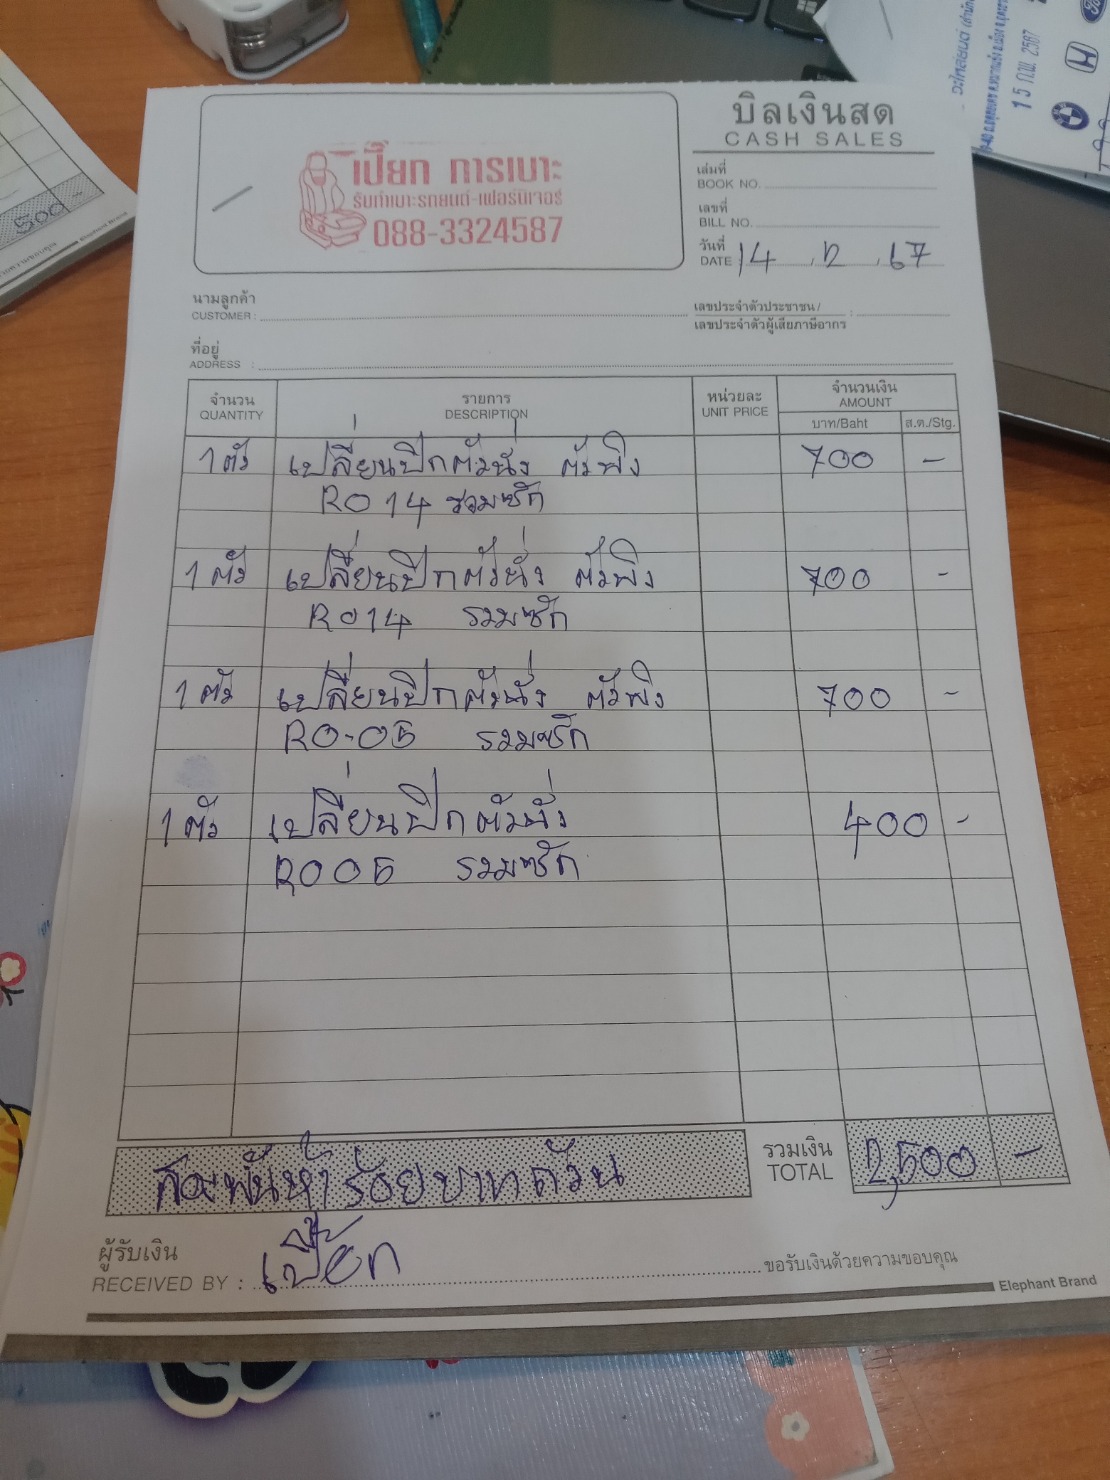 บิลเงินสด
CASH SALES
เปี๊ยก การเบาะ
รับทำเบาะรถยนต์-เฟอร์นิเจอร์
088-3324587
เล่มที่
BOOK NO.
เลขที่
BILL NO.
วันที่
DATE 14 . 2 . 67
นามลูกค้า
CUSTOMER :
เลขประจำตัวประชาชน /
เลขประจำตัวผู้เสียภาษีอากร :
ที่อยู่
ADDRESS :
จำนวน รายการ หน่วยละ จำนวนเงิน
QUANTITY DESCRIPTION UNIT PRICE AMOUNT
บาท/Baht ส.ต./Stg.
1 ตัว เปลี่ยนปีกตัวนั่ง ตัวพิง 700 -
RO 14 รวมซัก
1 ตัว เปลี่ยนปีกตัวนั่ง ตัวพิง 700 -
RO14 รวมซัก
1 ตัว เปลี่ยนปีกตัวนั่ง ตัวพิง 700 -
RO-05 รวมซัก
1 ตัว เปลี่ยนปีกตัวนั่ง 400 -
RO05 รวมซัก
สองพันห้าร้อยบาทถ้วน
รวมเงิน
TOTAL 2,500 -
ผู้รับเงิน
RECEIVED BY : เปี๊ยก
ขอรับเงินด้วยความขอบคุณ
Elephant Brand
15 ก.พ. 2567
500 -
Elephant Brand